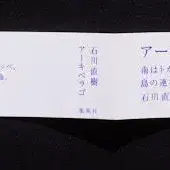 アー
南はトカ
島の連
石川直
石川直樹
アーキペラゴ
集英社